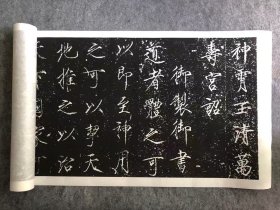 神霄玉清萬
壽宮詔
御製御書
道者體之可
以即至神用
之可以挈天
地推之以治
天下國家可